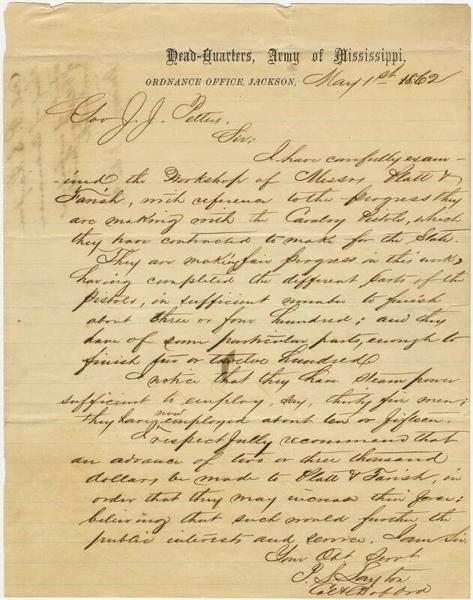 Head-Quarters, Army of Mississippi,
ORDNANCE OFFICE, JACKSON, May 1st 1862
Gov J. J. Pettus,
Sir:
I have carefully exam-
-ined the Workshop of Messrs Platt &
Farish, with reference to the progress they
are making with the Cavalry Pistols, which
they have contracted to make for the State.
They are making fair progress in this work,
having completed the different parts of the
Pistols, in sufficient number to finish
about three or four hundred; and they
have of some particular parts, enough to
finish five or twelve hundred.
I notice that they have steam power
sufficient to employ, say, thirty five men;
they have now employed about ten or fifteen.
I respectfully recommend that
an advance of two or three thousand
dollars, be made to Platt & Farish, in
order that they may increase their force;
believing that such would further the
public interests and service. I am Sir,
Your Obt Servt
Layton
Col &